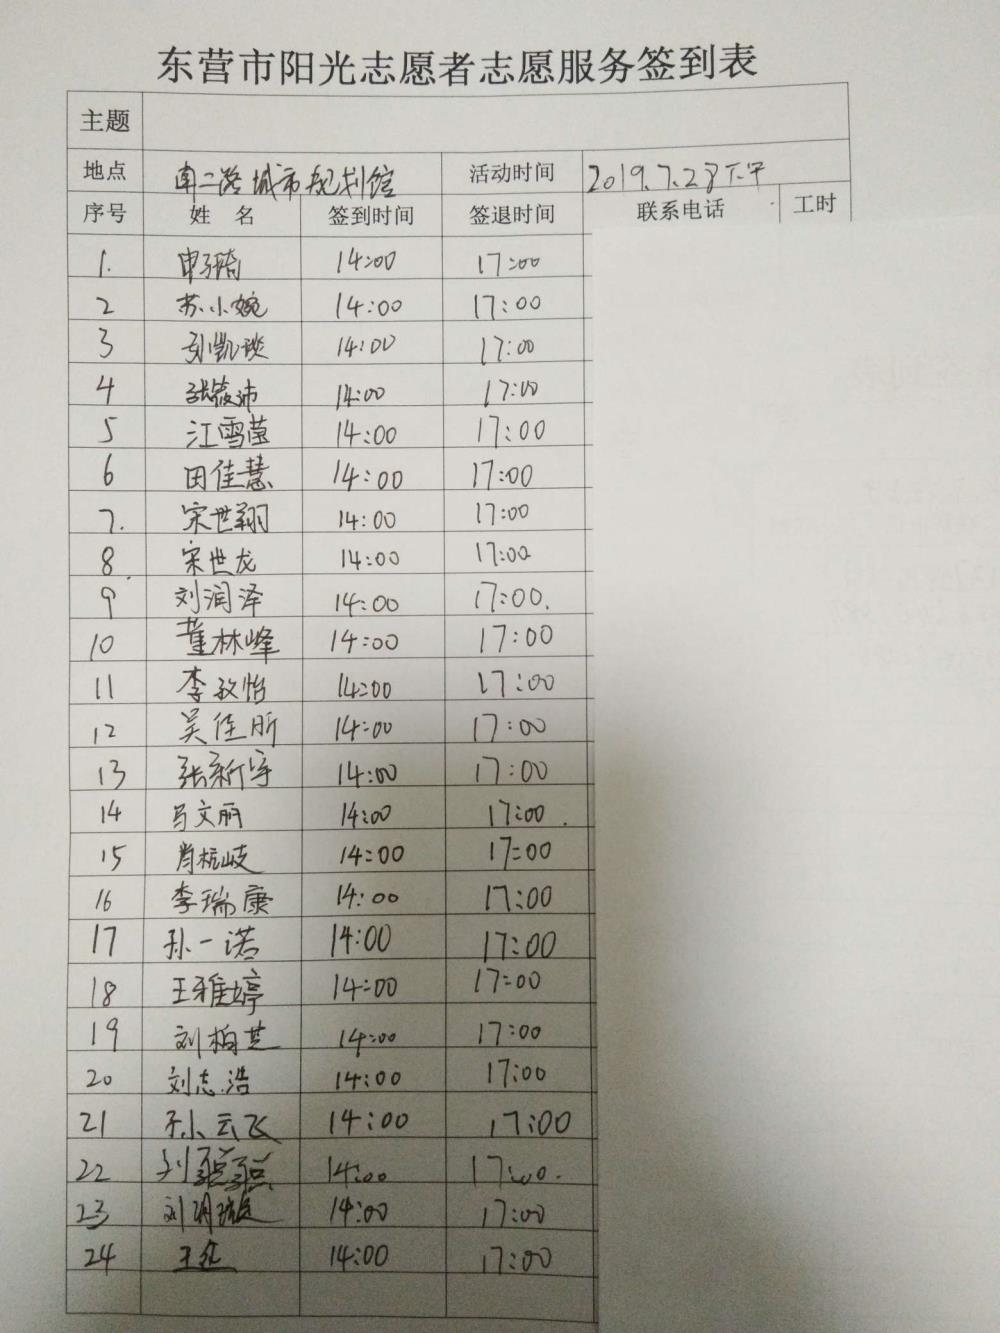 东营市阳光志愿者志愿服务签到表
主题
地点 南二路城市规划馆 活动时间 2019.7.28下午
序号 姓名 签到时间 签退时间 联系电话 工时
1. 14:00 17:00
2 苏小婉 14:00 17:00
3 孙凯琰 14:00 17:00
4 张筱沛 14:00 17:00
5 江雪莹 14:00 17:00
6 田佳慧 14:00 17:00
7. 宋世翔 14:00 17:00
8 宋世龙 14:00 17:00
9 刘润泽 14:00 17:00.
10 董林峰 14:00 17:00
11 李孜怡 14:00 17:00
12 吴佳昕 14:00 17:00
13 张新宇 14:00 17:00
14 马文丽 14:00 17:00.
15 肖杭岐 14:00 17:00
16 李瑞康 14:00 17:00
17 孙一诺 14:00 17:00
18 王雅婷 14:00 17:00
19 刘柏芝 14:00 17:00
20 刘志浩 14:00 17:00
21 孙云飞 14:00 17:00
22 14:00 17:00.
23 14:00 17:00
24 14:00 17:00